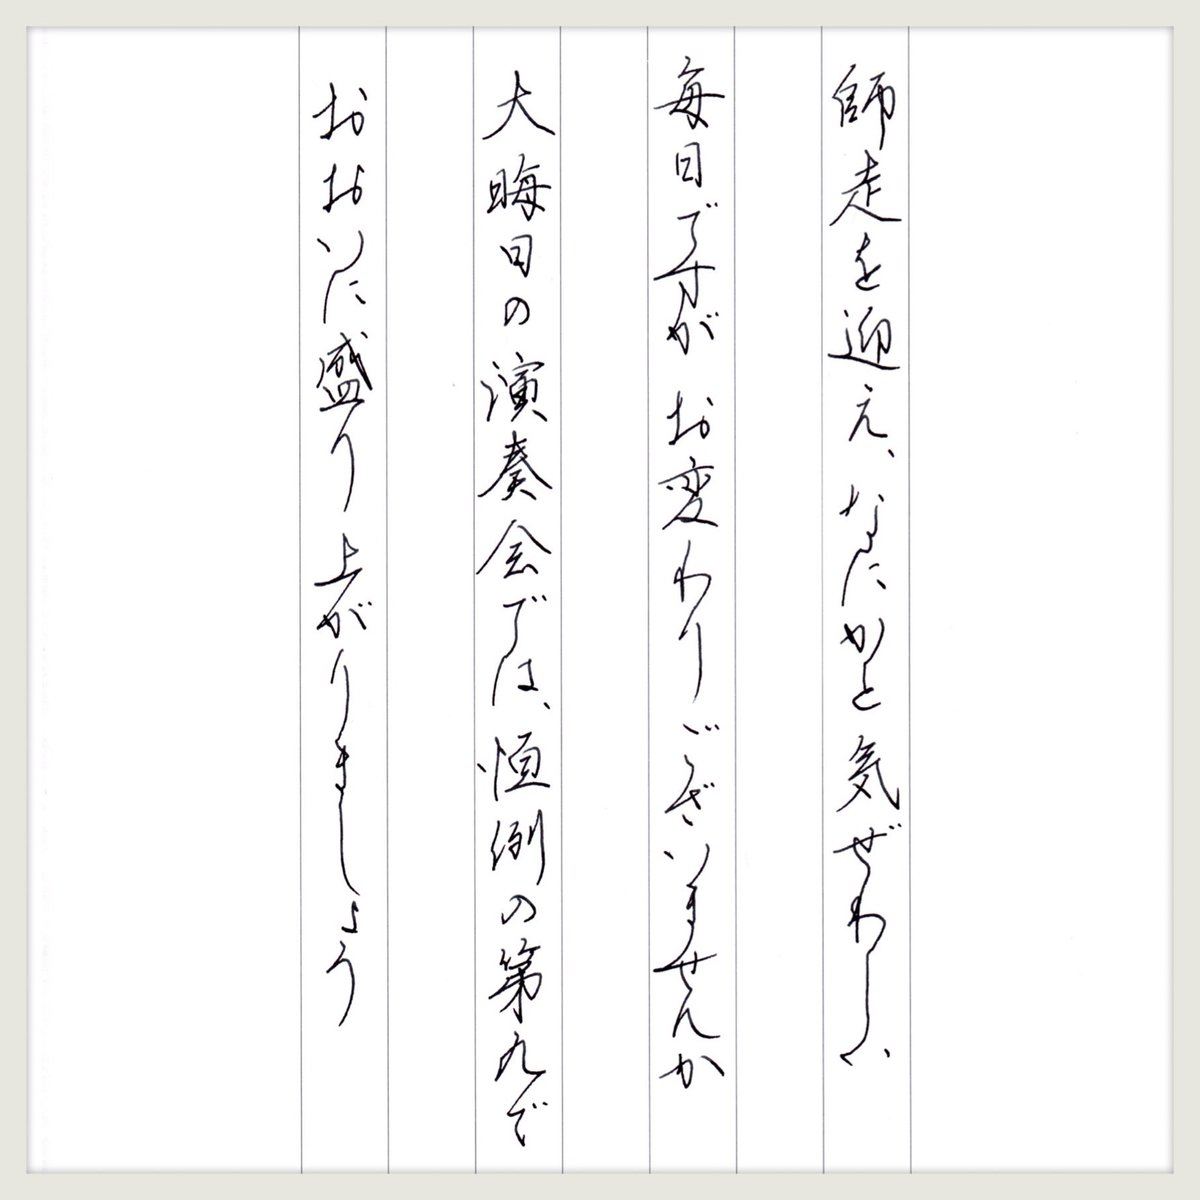 師走を迎え、なにかと気ぜわしい
毎日ですがお変わりございませんか
大晦日の演奏会では、恒例の第九で
おおいに盛り上がりましょう